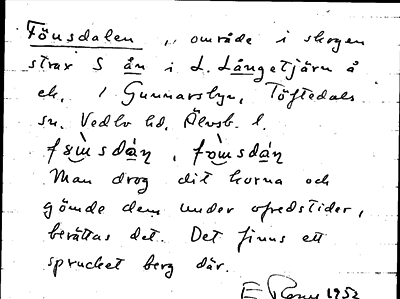 Fönsdalen ,, område i skogen
strax S ån i L. Långetjärn å
ek. / Gunnarsbyn, Töftedals
sn. Vedbo hd. Älvsb. l.
Man drog dit korna och
gömde dem under ofredstider,
berättas det. Det finns ett
sprucket berg där.
E 1952